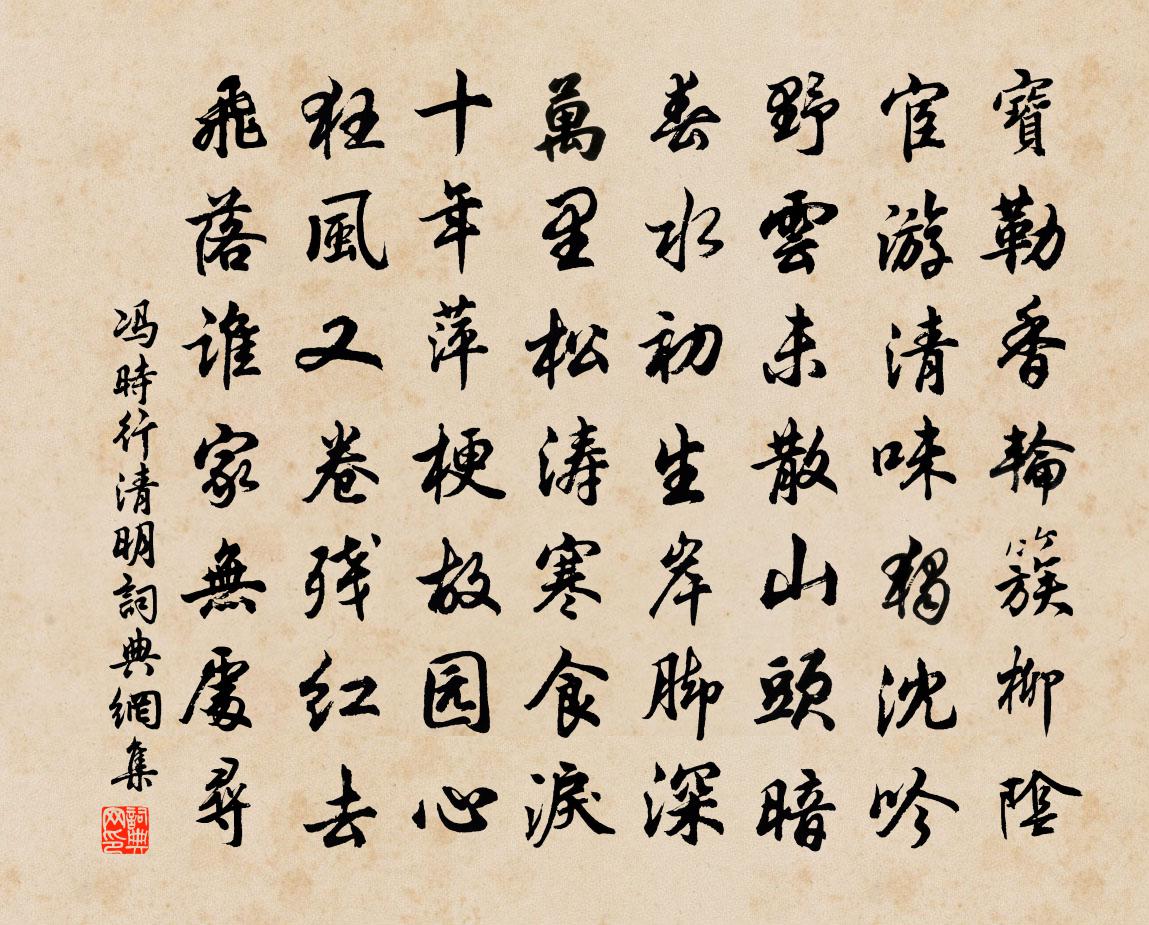 寶勒香輪簇柳陰
宦游清味獨沈吟
野雲未散山頭暗
春水初生岸脚深
萬里松濤寒食淚
十年萍梗故园心
狂風又卷殘红去
飛落誰家無處尋
冯時行清明詞典網集
詞典网印